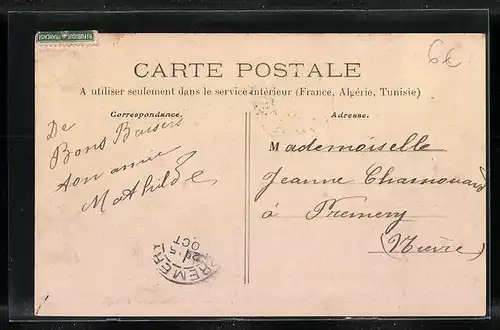 REPUBLIQUE FRANÇAISE
6€
CARTE POSTALE
A utiliser seulement dans le service intérieur (France, Algérie, Tunisie)
Correspondance.
De
Bons Baisers
ton amie
Mathilde
Adresse.
Mademoiselle
Jeanne Chamouard
à Premery
(Nièvre)
PREMERY
5
OCT